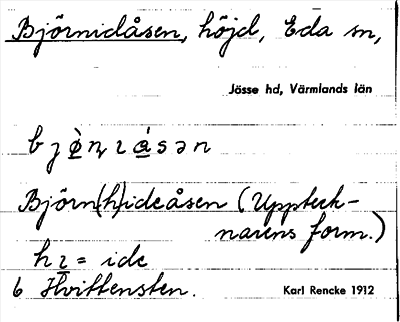 Björnidåsen, höjd, Eda sn,
Jösse hd, Värmlands län
Björn(h)ideåsen (Uppteck-
narens form.)
hı = ide
6 Hvittensten.
Karl Rencke 1912